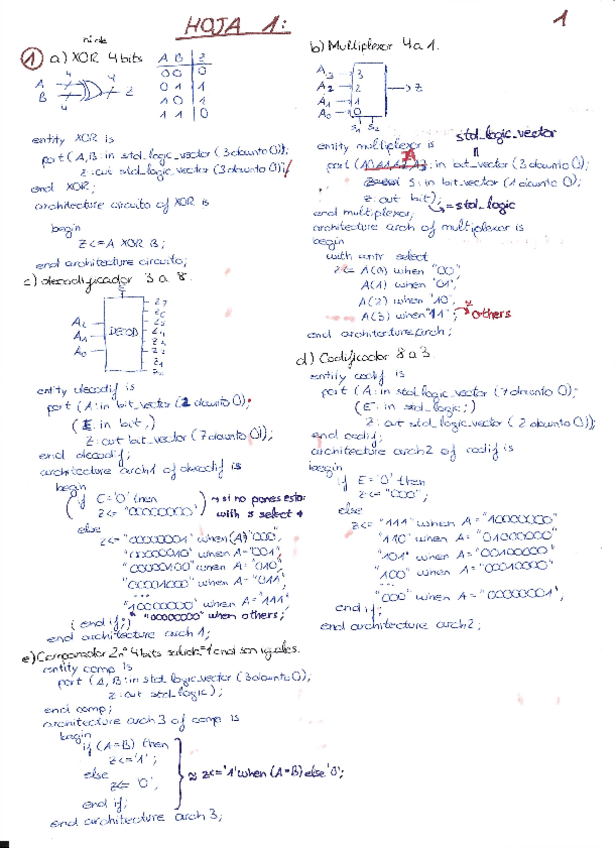 HOJA 1:
1
1 a) XOR 4bits
A B Z
0 0 0
0 1 1
1 0 1
1 1 0
A 4 4
B 4 Z
entity XOR is
port (A,B: in std_logic_vector (3 downto 0);
z: out std_logic_vector (3 downto 0));
end XOR;
architecture circuito of XOR is
begin
Z <= A XOR B;
end architecture circuito;
b) Multiplexor 4 a 1.
A3 3
A2 2
A1 1
A0 0
Z
S1 S2
entity multiplexor is std_logic_vector
port ( A: in bit_vector (3 downto 0);
S: in bit_vector (1 downto 0);
z: out bit); = std_logic
end multiplexor;
architecture arch of multiplexor is
begin
with select
z <= A(0) when "00"
A(1) when "01",
A(2) when "10",
A(3) when "11"; others
end architecture arch;
c) decodificador 3 a 8.
E
A2
A1 DECOD
A0
Z7
Z6
Z5
Z4
Z3
Z2
Z1
Z0
entity decodif is
port (A: in bit_vector (2 downto 0);
(E: in bit;)
z: out bit_vector (7 downto 0));
end decodif;
architecture arch1 of decodif is
begin
(if E='0' then
z <= "00000000") → si no pones esto
with s select
else
z <= "00000001" when (A) "000",
"00000010" when A="001",
"00000100" when A="010",
"00001000" when A="011",
...
"10000000" when A="111"
"00000000" when others;
(end if;)
end architecture arch1;
d) Codificador 8 a 3.
entity codif is
port (A: in std_logic_vector (7 downto 0);
(E: in std_logic;)
z: out std_logic_vector (2 downto 0));
end codif;
architecture arch2 of codif is
begin
if E='0' then
z <= "000";
else
z <= "111" when A="10000000"
"110" when A="01000000"
"101" when A="00100000"
"100" when A="00010000"
...
"000" when A="00000001";
end if;
end architecture arch2;
e) Comparador 2 nº 4 bits salida=1 cnd son iguales.
entity comp is
port (A, B: in std_logic_vector (3 downto 0);
z: out std_logic);
end comp;
architecture arch3 of comp is
begin
if (A=B) then
z <= '1';
else
z <= '0',
end if;
≈ z <= '1' when (A=B) else '0';
end architecture arch3;